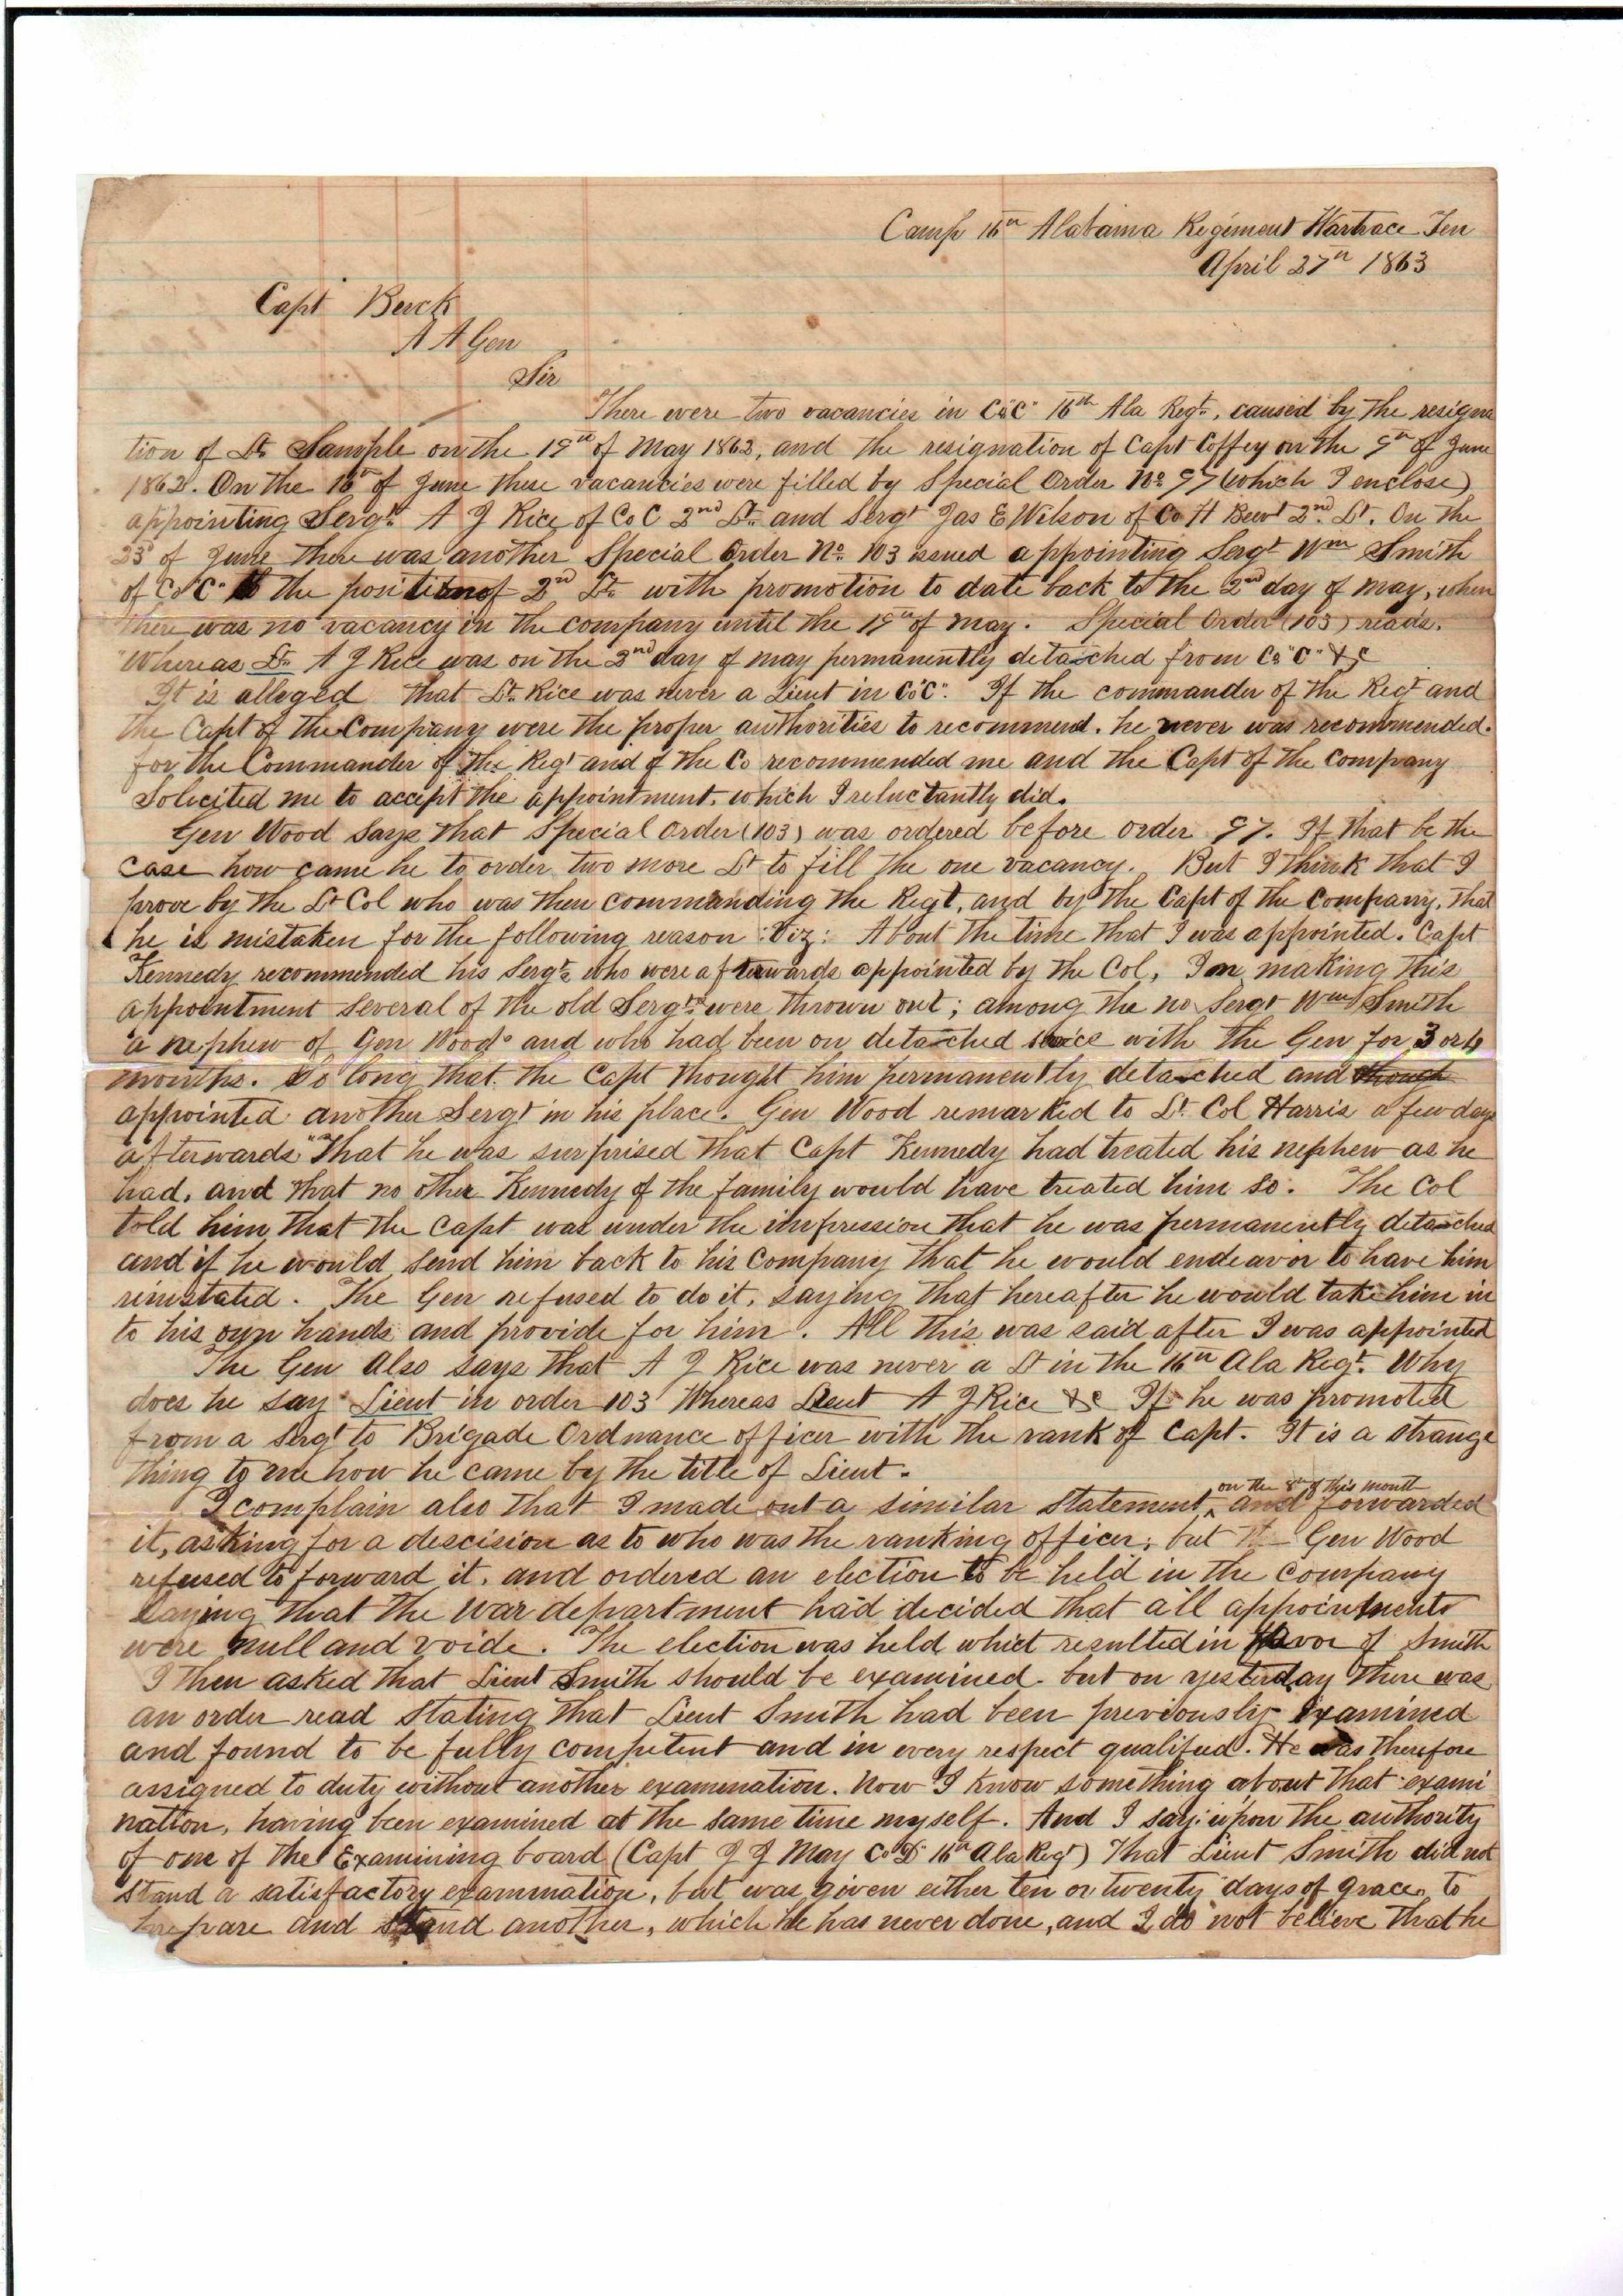 Camp 16th Alabama Regiment Wartrace Ten
April 27th 1863
Capt Beuck
A A Gen
Sir
There were two vacancies in Co "C" 16th Ala Regt, caused by the resigna
tion of Lt. Sample on the 19th of May 1862, and the resignation of Capt Coffey on the 9th of June
1862. On the 16th of June these vacancies were filled by Special Order No 97 (which I enclose)
appointing Sergt A J Rice of Co C 2nd Lt. and Sergt Jas E Wilson of Co H Bevt 2nd Lt. On the
23d of June there was another Special Order No. 103 issued appointing Sergt Wm Smith
of Co "C" to the position of 2nd Lt. with promotion to date back to the 2nd day of May, when
there was no vacancy in the company until the 19th of May. Special Order (103) reads.
"Whereas Lt. A J Rice was on the 2nd day of May permanently detached from Co "C" &c
It is alleged that Lt. Rice was never a Lieut in Co "C". If the commander of the Regt and
the Capt of the Company were the proper authorities to recommend. he never was recommended.
for the Commander of the Regt and of the Co recommended me and the Capt of the Company
Solicited me to accept the appointment, which I reluctantly did.
Gen Wood says that Special Order (103) was ordered before order 97. If that be the
case how came he to order two more Lt to fill the one vacancy. But I think that I
prove by the Lt Col who was then commanding the Regt, and by the Capt of the Company, that
he is mistaken for the following reason :Viz: About the time that I was appointed. Capt
Kennedy recommended his Sergts who were afterwards appointed by the Col, In making this
appointment several of the old Sergts were thrown out; among the no Sergt Wm Smith
a nephew of Gen Woods and who had been on detached sevice with the Gen for 3 or 4
months. So long that the Capt thought him permanently detached and though
appointed another Sergt in his place. Gen Wood remarked to Lt. Col Harris a few days
afterwards "That he was surprised that Capt Kennedy had treated his nephew as he
had, and that no other Kennedy of the family would have treated him so. The Col
told him that the Capt was under the impression that he was permanently detached
and if he would send him back to his Company that he would endeavor to have him
reinstated. The Gen refused to do it, saying that hereafter he would take him in
to his own hands and provide for him. All this was said after I was appointed
The Gen Also says that A J Rice was never a Lt in the 16th Ala Regt. Why
does he say Lieut in order 103 Whereas Lieut A J Rice &c If he was promoted
from a Sergt to Brigade Ordnance officer with the rank of Capt. It is a strange
thing to me how he came by the title of Lieut.
I complain also that I made out a similar statement on the 8th of this month and forwarded
it, asking for a descision as to who was the ranking officer; but Gen Wood
refused to forward it. and ordered an election to be held in the Company
saying that the War department had decided that all appointments
were null and voide. The election was held which resulted in favor of Smith
I then asked that Lieut Smith should be examined. but on yesterday there was
an order read stating that Lieut Smith had been previously examined
and found to be fully competent and in every respect qualified. He was therefore
assigned to duty without another examination. Now I know something about that exami
nation, having been examined at the same time myself. And I say: upon the authority
of one of the Examining board (Capt J J May Co "D" 16th Ala Regt) That Lieut Smith did not
stand a satisfactory examination, but was given either ten or twenty days of grace, to
prepare and stand another, which he has never done, and I do not believe that he